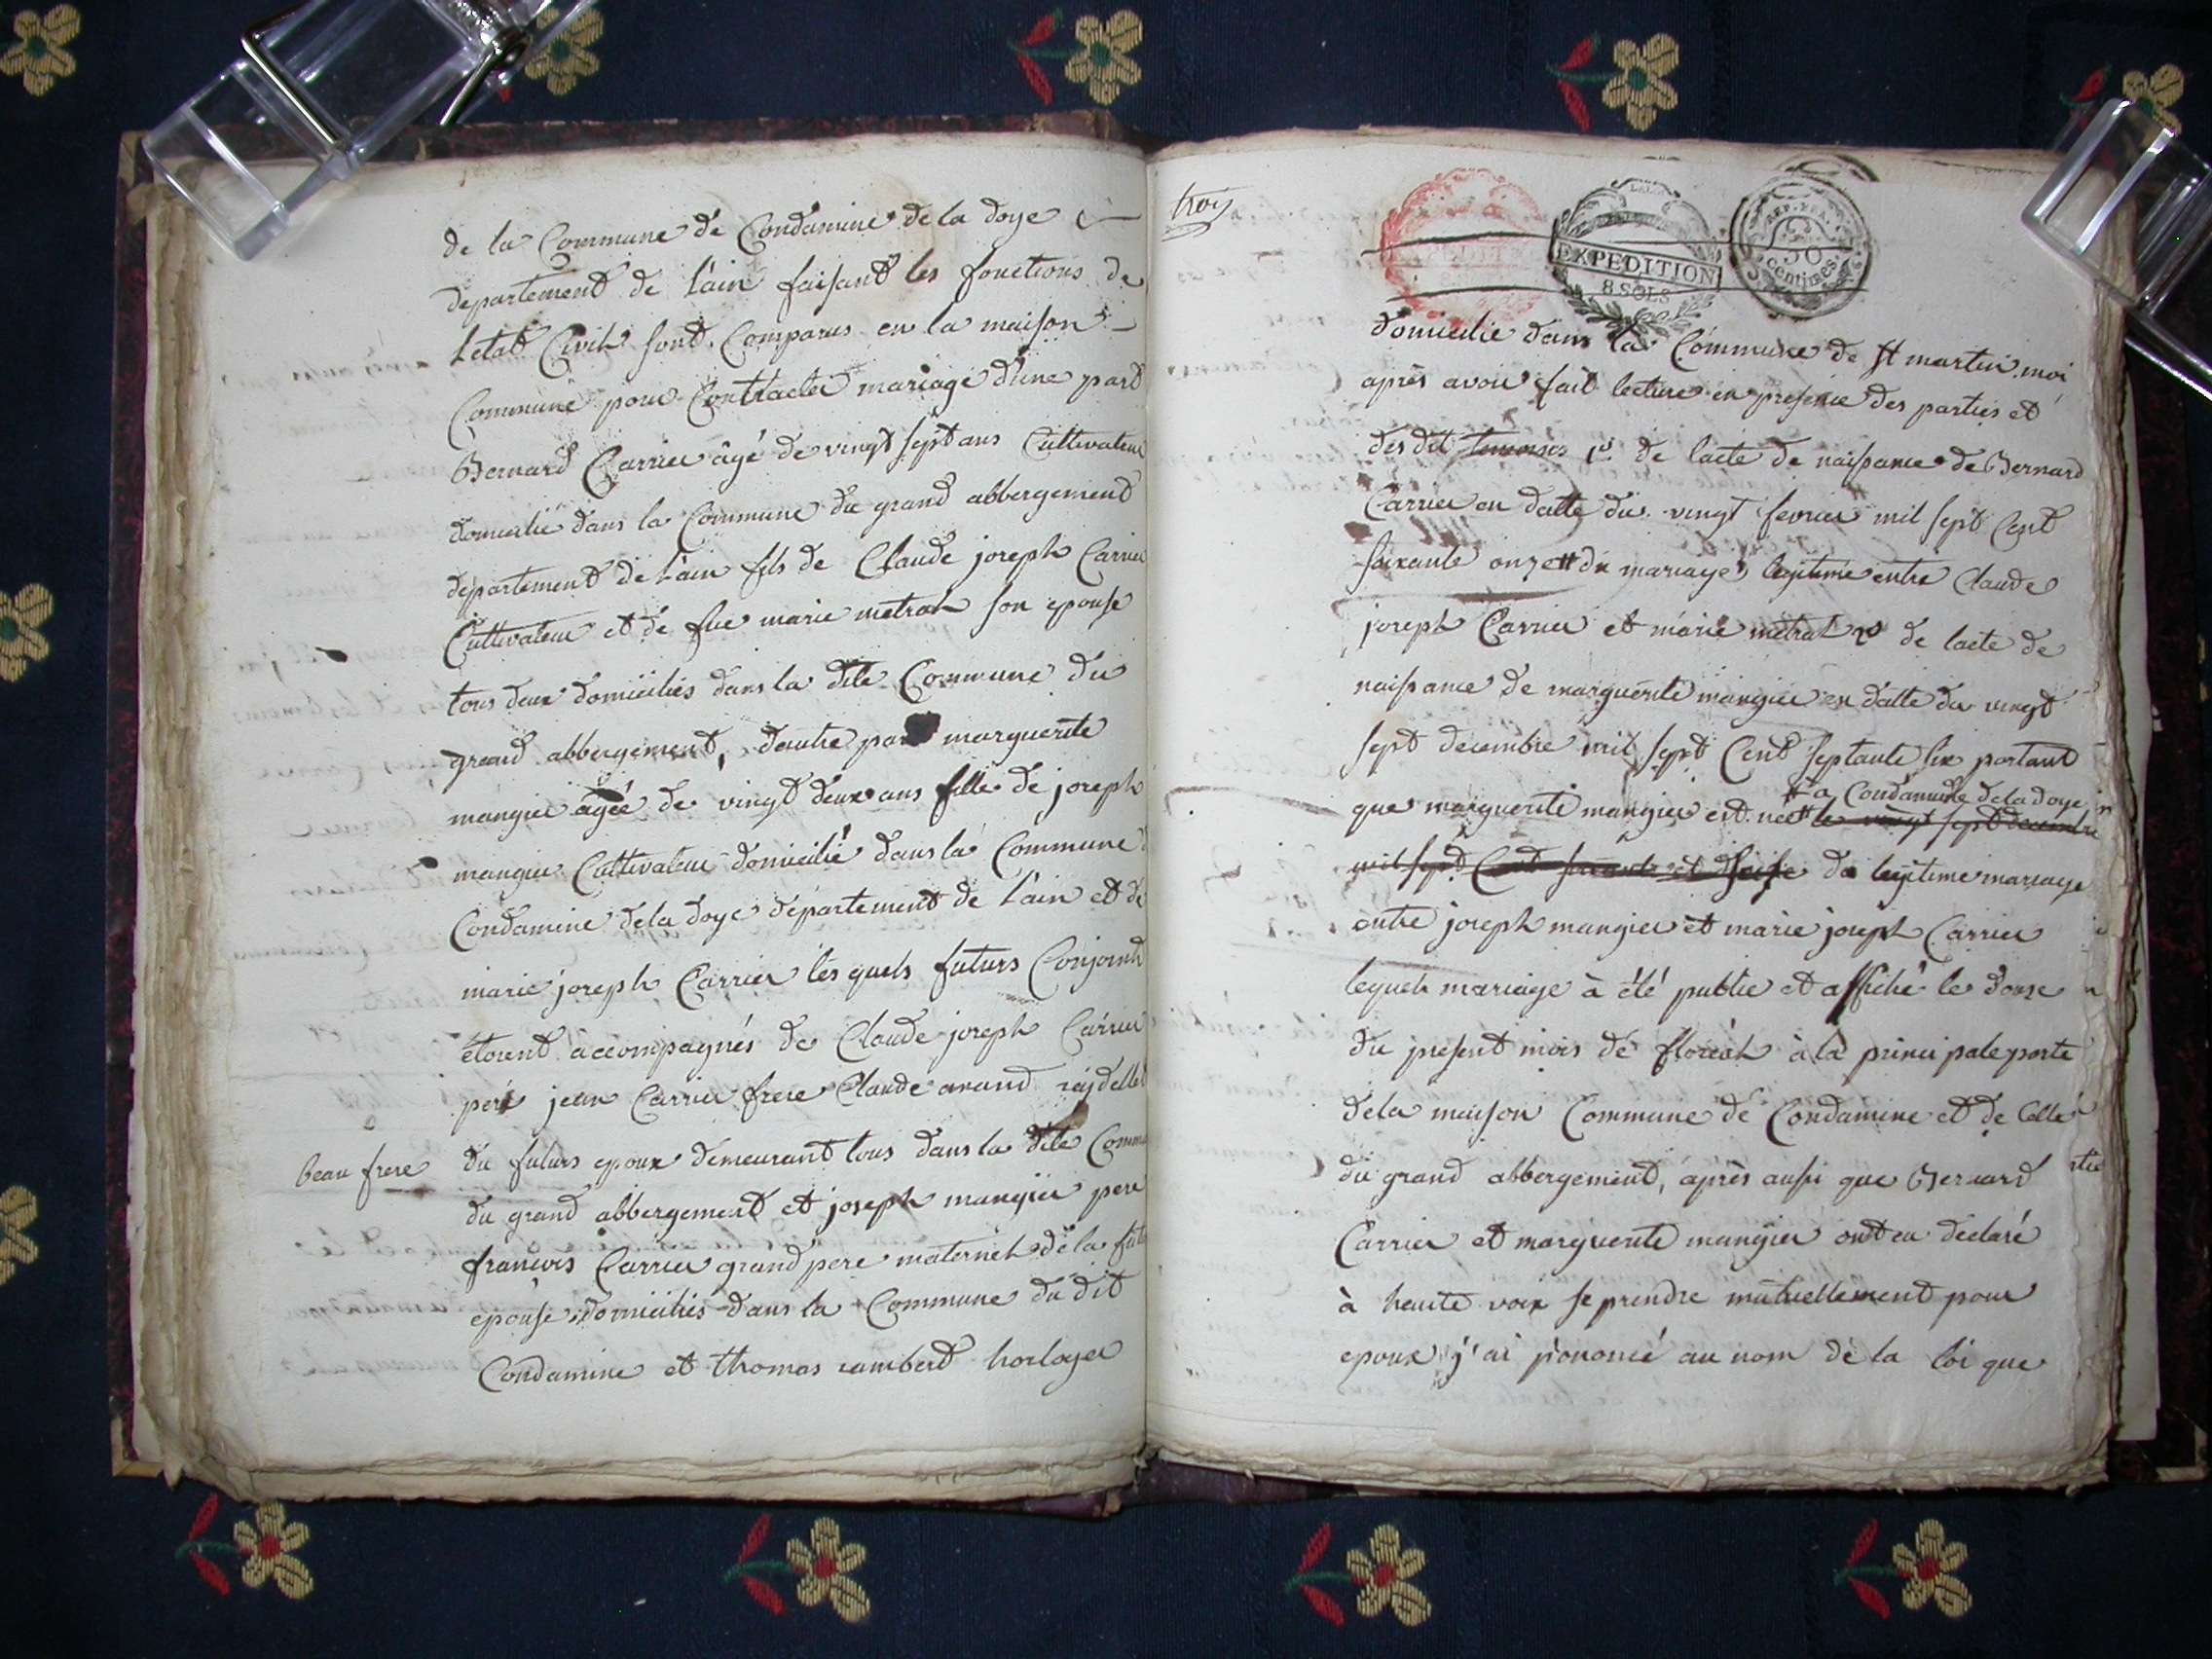 de la Commune de Condamine de la doye
departement de l'ain faisant les fonctions de
letat Civil sont Comparus en la maison
Commune pour Contracter mariage d'une part
Bernard Carrier âgé de vingt sept ans Cultivateur
domicilié dans la Commune du grand abbergement
département de l'ain fils de Claude joseph Carrier
Cultivateur et de fue marie metral son epouse
tous deux domiciliés dans la dite Commune du
grand abbergement, dautre part marguerite
mangier agée de vingt deux ans fille de joseph
mangier Cultivateur domicilié dans la Commune
Condamine dela doye département de l'ain et de
marie joseph Carrier les quels futurs Conjoints
étoient accompagnés de Claude joseph Carrier
pere jean Carrier frere Claude
beau frere du futurs epoux demeurant tous dans la dite Commu
du grand abbergement et joseph mangier pere
francois Carrier grand pere maternel de la
epouse domiciliés dans la Commune du dit
Condamine et thomas horloger
trois
EXPEDITION
8 SOLS
REP. FRA.
50
Centimes
domicilié dans la Commune de St martin moi
après avoir fait lecture en presence des parties et
des dit temoins 1° de lacte de naissance de Bernard
Carrier en datte du vingt fevrier mil sept Cent
soixante onze du mariage legitime entre Claude
joseph Carrier et marie metral 2° de lacte de
naissance de marguerite mangier en datte du vingt
sept decembre mil sept Cent septante six portant
a Condamine dela doye
que marguerite mangier est née le vingt sept decembre
mil sept Cent du legitime mariage
entre joseph mangier et marie joseph Carrier
lequel mariage à été publie et affiché le douze
du present mois de floreal à la principale porte
dela maison Commune de Condamine et de Celle
du grand abbergement, après aussi que Bernard
Carrier et marguerite mangier ont eu déclaré
à haute voix se prendre mutuellement pour
epoux j'ai prononcé au nom de la loi que